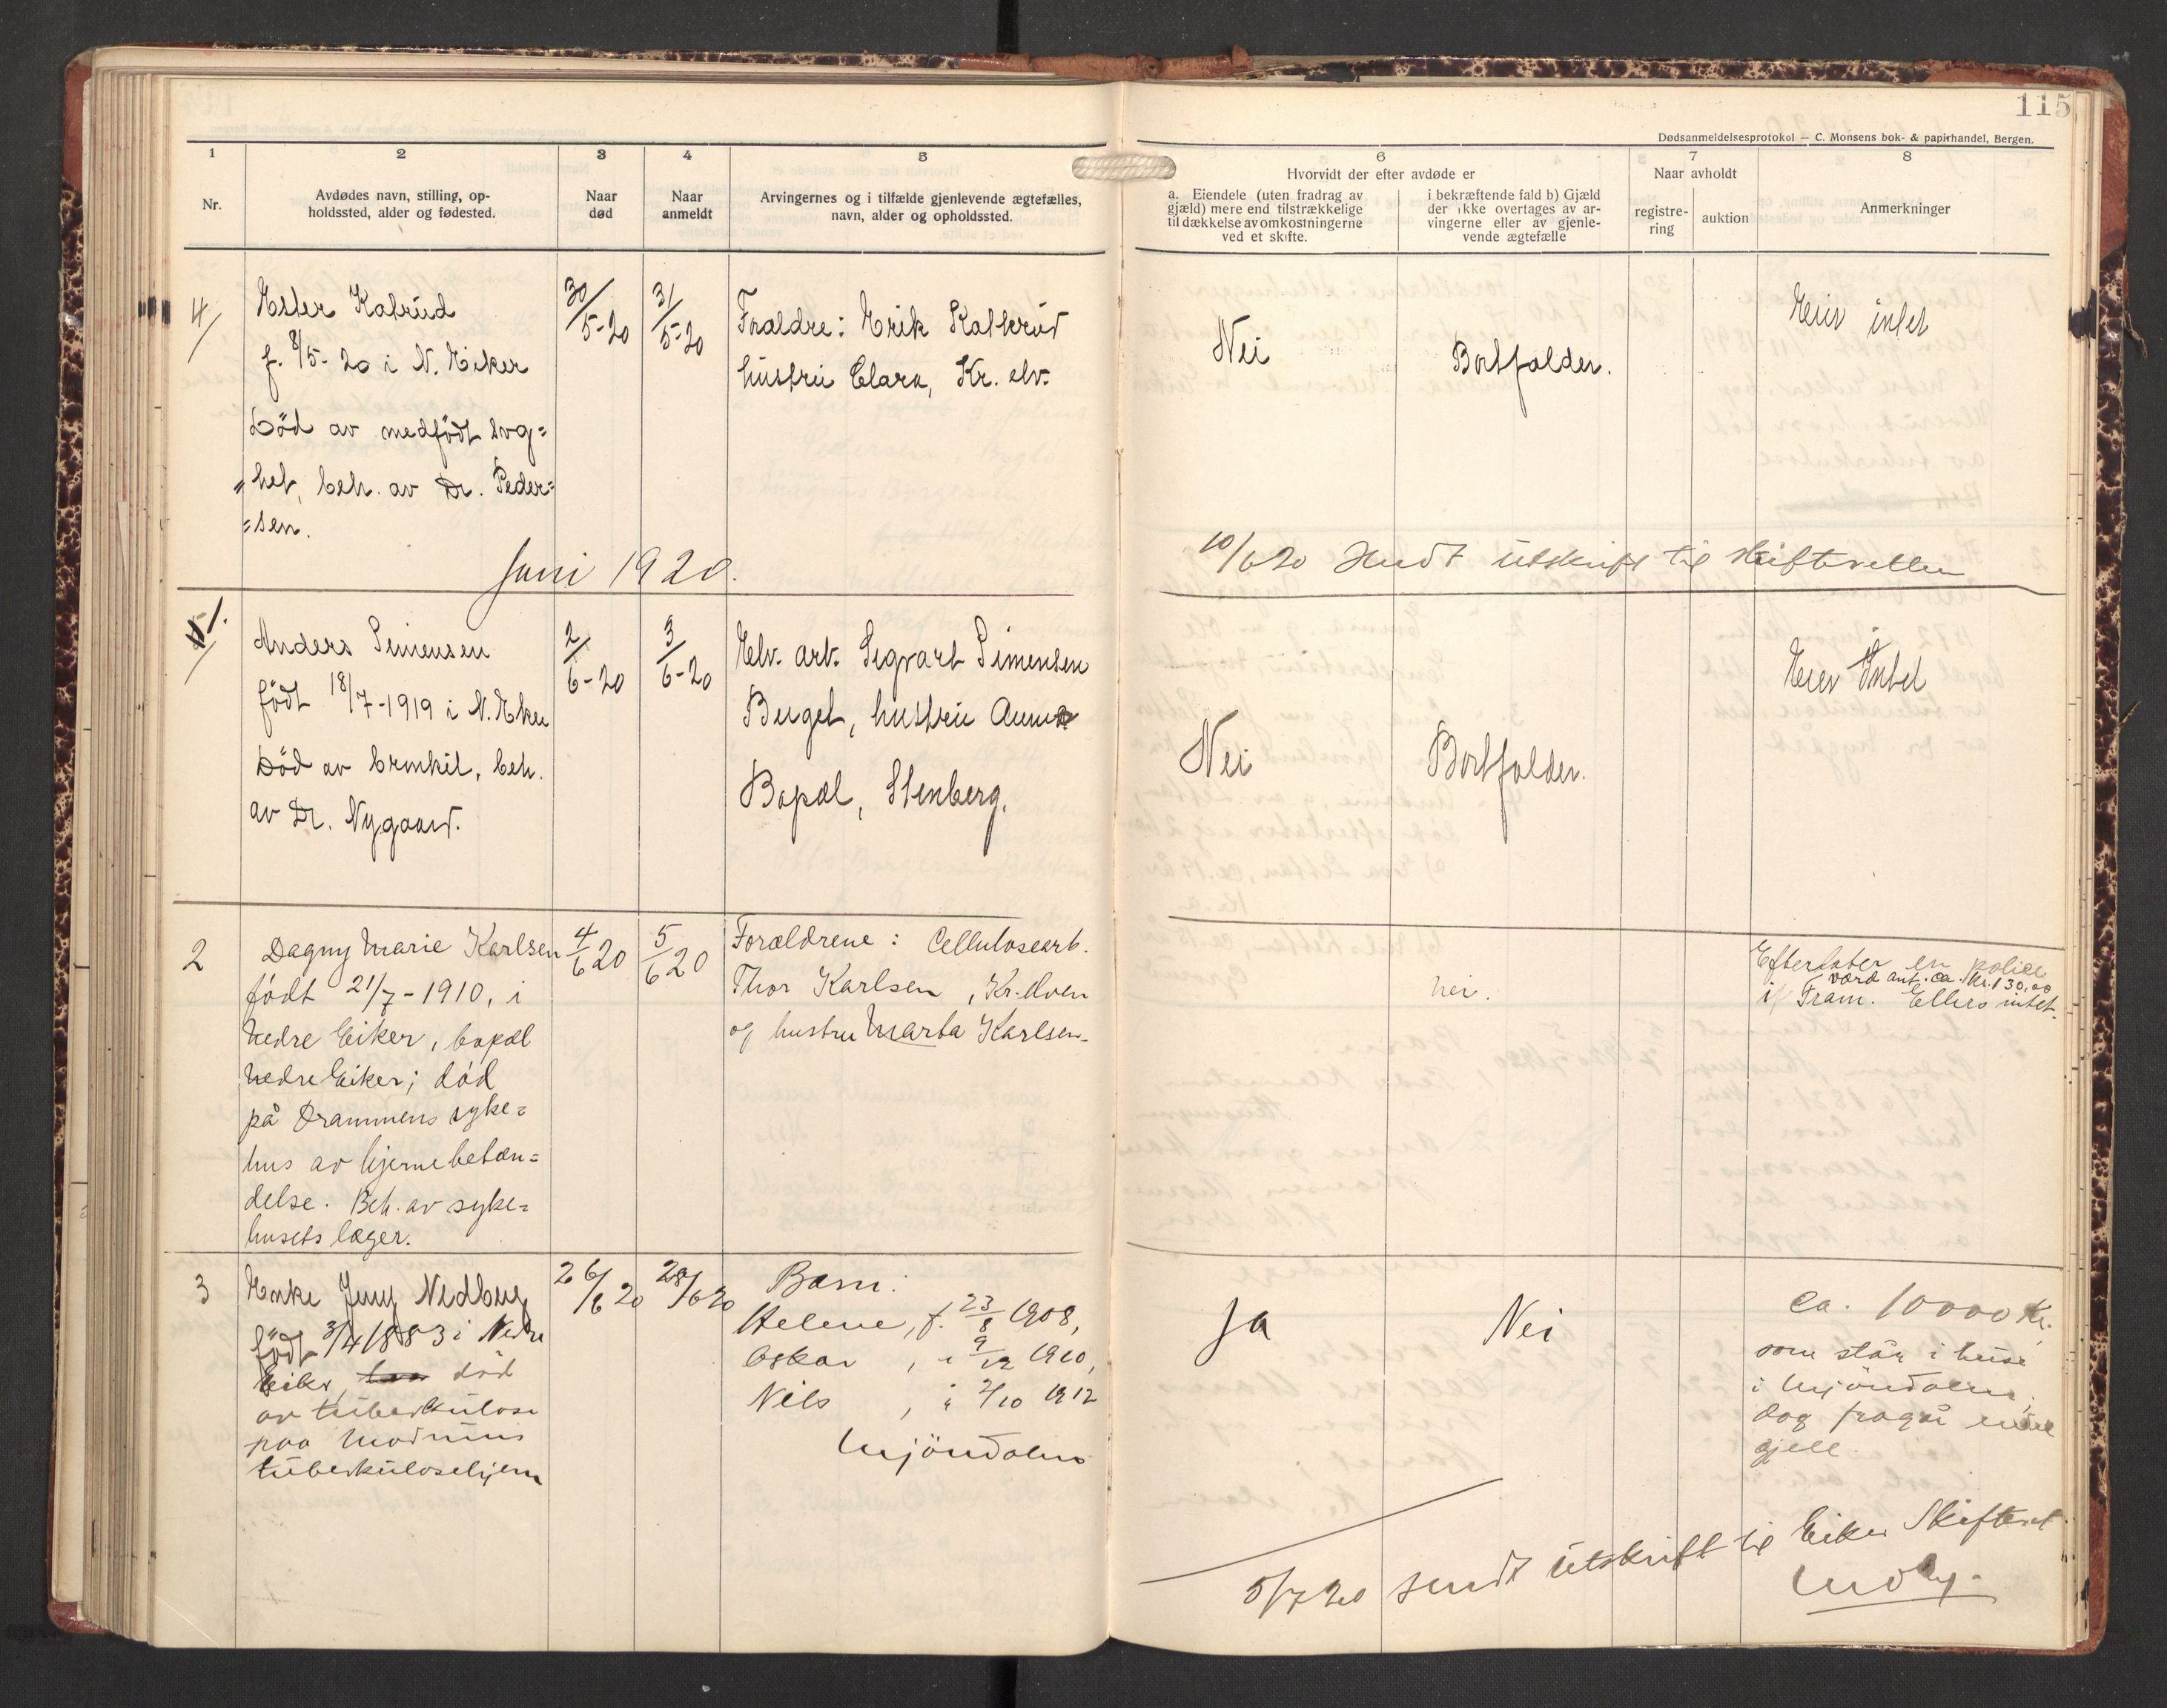 115
Dødsanmeldelsesprotokol — C. Monsens bok- & papirhandel, Bergen.
1
2
3
4
5
6
7
8
Nr.
Avdødes navn, stilling, op-
holdssted, alder og fødested.
Naar
død
Naar
anmeldt
Arvingernes og i tilfælde gjenlevende ægtefælles,
navn, alder og opholdssted.
Hvorvidt der efter avdøde er
a. Eiendele (uten fradrag av
gjæld) mere end tilstrækkelige
til dækkelse av omkostningerne
ved et skifte.
i bekræftende fald b) Gjæld
der ikke overtages av ar-
vingerne eller av gjenle-
vende ægtefælle
Naar avholdt
registre-
ring
auktion
Anmerkninger
4/
Ester Kalrud
f. 8/5-20 i N. Eiker
Död av medfödt svag=
=het, beh. av Dr. Peder=
=sen.
30/5-20
31/5-20
Foraldre: Erik Kalkrud
hustru Clara, Kr. elv.
Nei
Bortfalder.
Eier intet
Juni 1920.
10/6 20 Sendt utskrift til skifteretten
1.
Anders Simensen
födt 18/7-1919 i N. Eker
Död av bronkit, beh.
av Dr. Nygaard.
2/6-20
3/6-20
Elv. arb. Sigvart Simensen
Berget, hustru Anna
Bopæl, Stenberg.
Nei
Bortfalder.
Eier Intet
2
Dagny Marie Karlsen
født 21/7-1910, i
Nedre Eiker, bopæl
Nedre Eiker; död
på Drammens syke=
hus av hjernebetæn=
delse. Beh. av syke=
husets læger.
4/6 20
5/6 20
Forældrene: Cellulosearb.
Thor Karlsen, Kr.-elven
og hustru Marta Karlsen.
nei.
Efterlater en police
værd ant. ca. Kr. 130,00
i Fram. Ellers intet.
3
Enke Jenny Nedberg
födt 3/4 1883 i Nedre
Eiker, død
av tuberkulose
paa Modums
tuberkulosehjem
26/6 20
28/6 20
Barn:
Helene, f. 23/8 1908,
Oskar, " 9/12 1910,
Nils, " 2/10 1912
Mjöndalen
Ja
Nei
ca. 10000 Kr.
som står i huse
i Mjöndalen,
dog fragår endel
gjell.
5/7 20 sendt utskrift til Eiker Skifteret